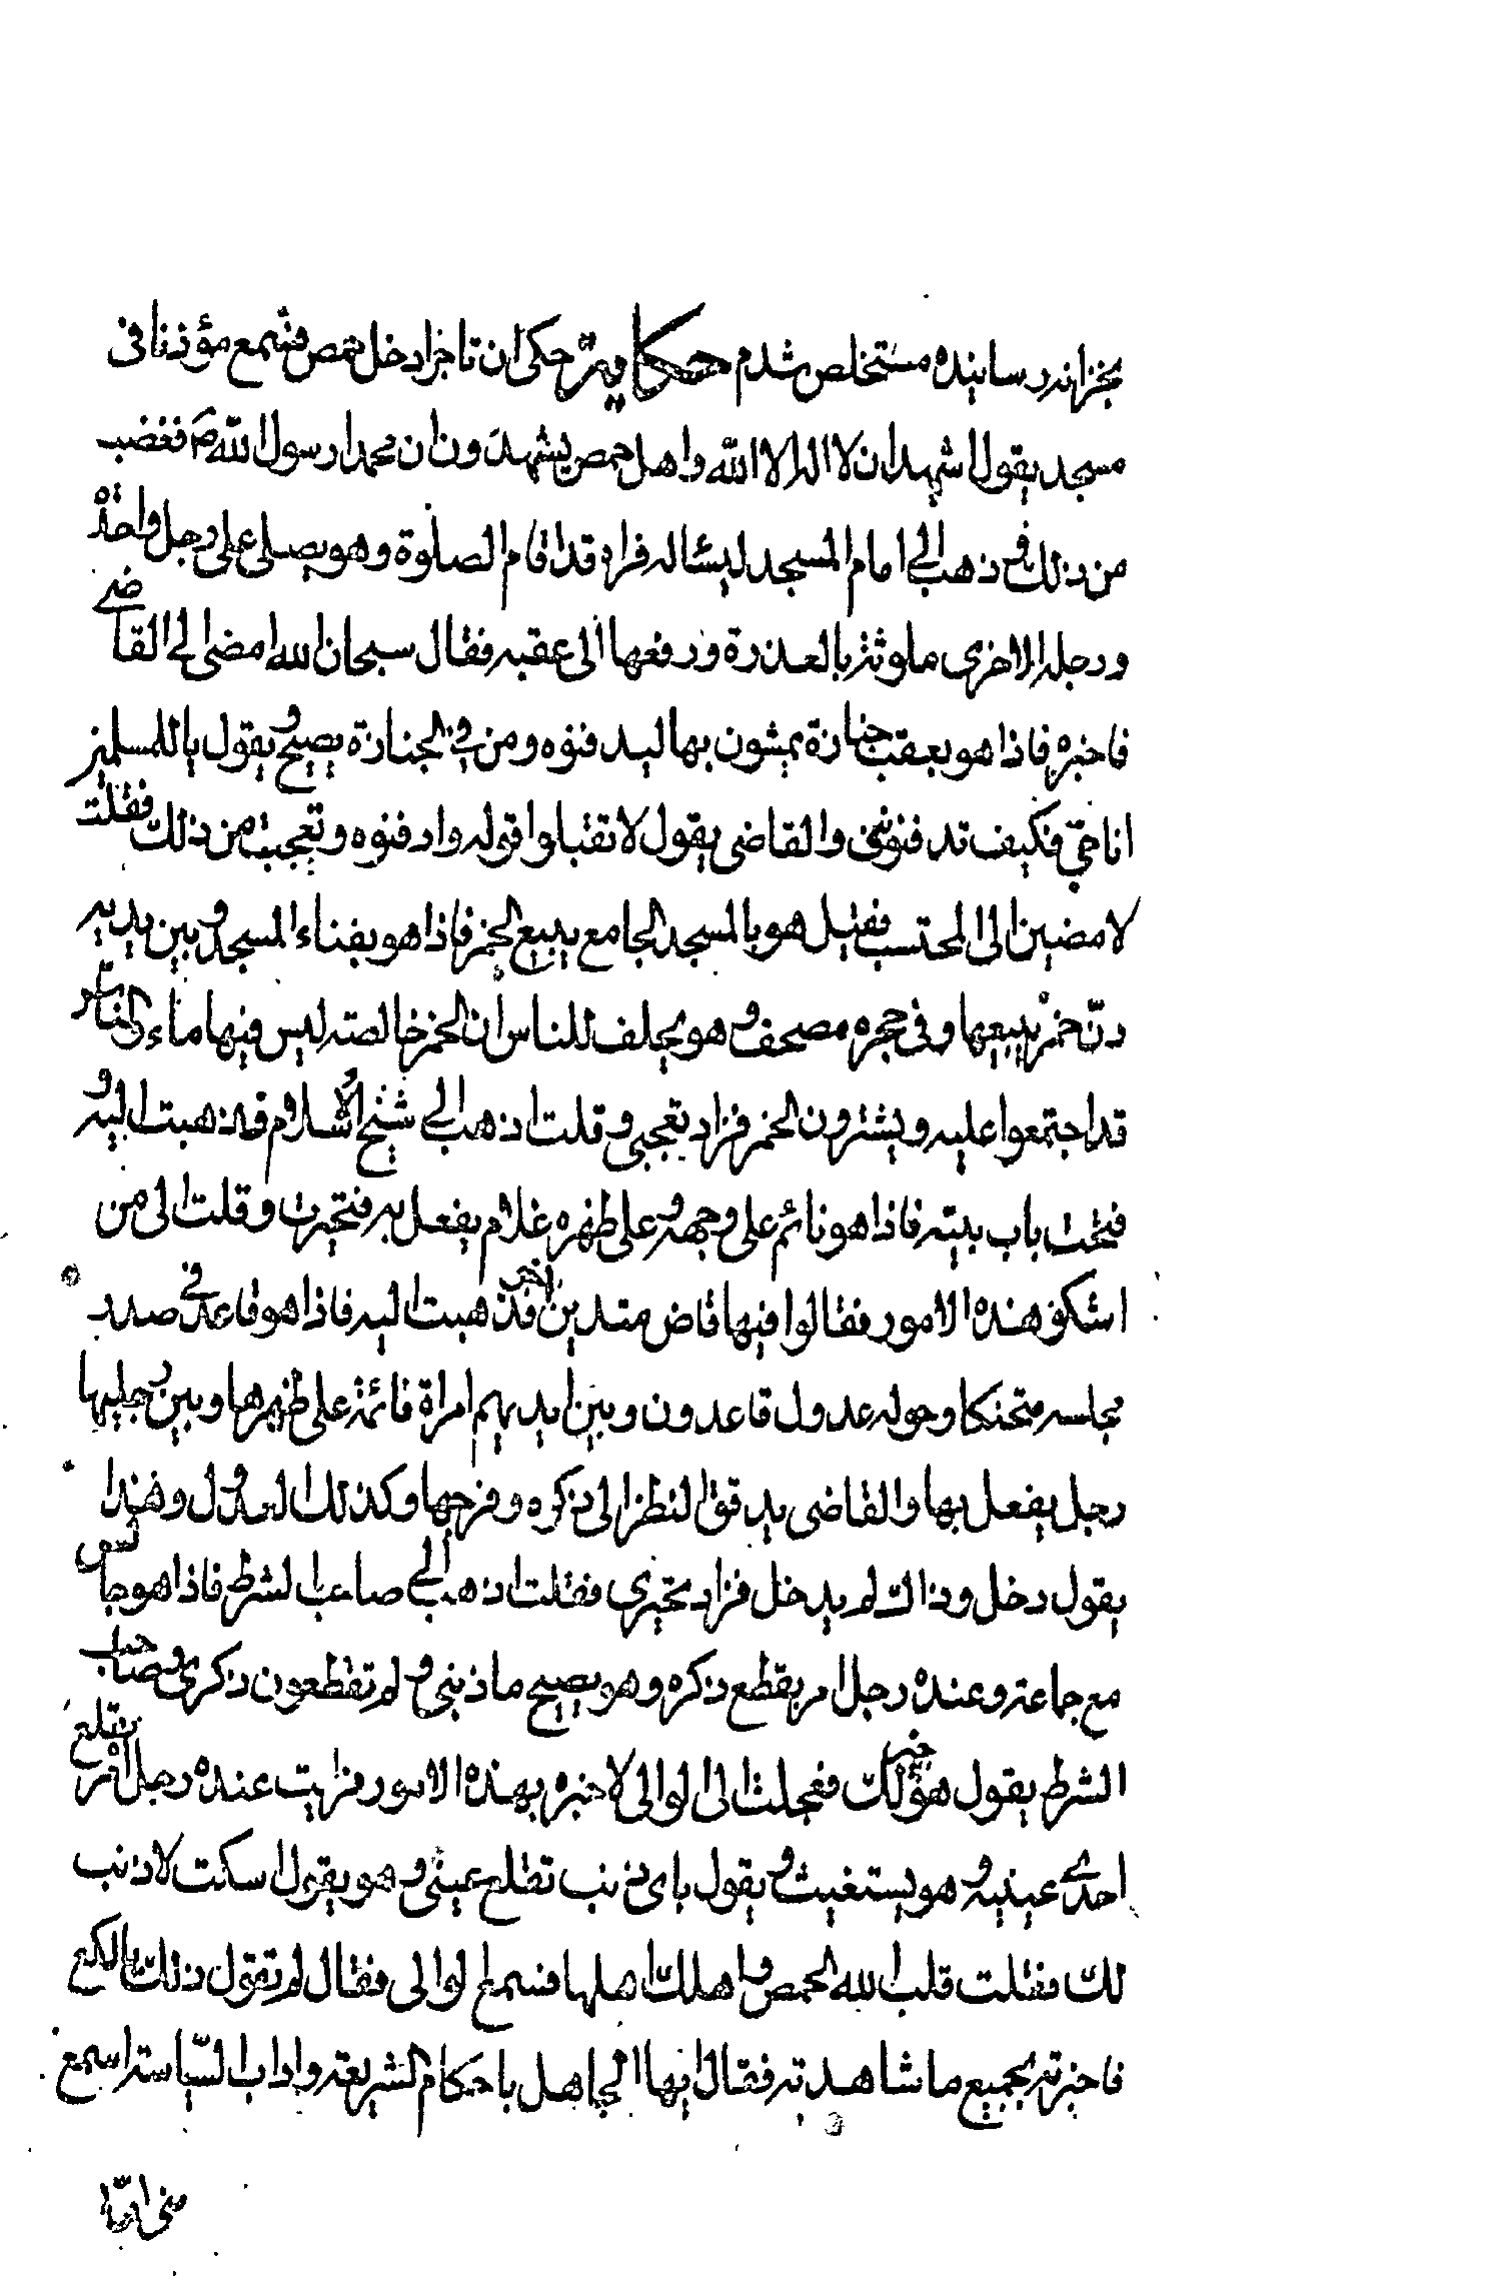 بخزانه رسانیده مستخلص شدم حکایة حکی ان تاجرا دخل حمص فسمع مؤذنا فی
مسجد یقول اشهد ان لا اله الا الله واهل حمص یشهدون ان محمدا رسول الله ص فغضب
من ذلک فذهب الی امام المسجد لیسئاله فراه قد اقام الصلوة وهو یصلی علی رجل واحدة
ورجله الاخری ملوثة بالعذرة ورفعها الی عقبه فقال سبحان الله امضی الی القاضی
فاخبره فاذا هو یعقب جنازة یمشون بها لیدفنوه ومن فی الجنازة یصیح ویقول یا للمسلمین
انا حیّ فکیف تدفنونی والقاضی یقول لا تقبلوا قوله وادفنوه وتعجبت من ذلک فقلت
لامضین الی المحتسب فقیل هو بالمسجد الجامع یبیع الخمر فاذا هو بفناء المسجد وبین یدیه
دنّ خمر یبیعها وفی حجره مصحف وهو یحلف للناس ان الخمر خالصته لیس فیها ماء والناس
قد اجتمعوا علیه ویشترون الخمر فزاد تعجبی وقلت اذهب الی شیخ الاسلام فذهبت الیه و
فتحت باب بیته فاذا هو نائم علی وجهه وعلی ظهره غلام یفعل به فتحیرت وقلت الی من
اشکو هذه الامور فقالوا فیها قاض متدین اخر فذهبت الیه فاذا هو قاعد فی صدر
مجلسه متحنکا وحوله عدول قاعدون وبین ایدیهم امراة نائمة علی ظهرها وبین رجلیها
رجل یفعل بها والقاضی یدقق النظر الی ذکره وفرجها وکذلک العدول وهذا
یقول دخل وذاک لم یدخل فزاد تحیری فقلت اذهب الی صاحب الشرطه فاذا هو جالس
مع جماعته وعنده رجل امر بقطع ذکره وهو یصیح ما ذنبی ولم تقطعون ذکری وصاحب
الشرطه یقول هو خیر لک فعجلت الی الوالی لاخبره بهذه الامور فرایت عنده رجل امر بقلع
احدی عینیه وهو یستغیث ویقول بای ذنب تقلع عینی وهو یقول اسکت لا ذنب
لک فقلت قلب الله الحمص واهلک اهلها فسمع الوالی فقال لم تقول ذلک یا لکع
فاخبرته بجمیع ما شاهدته فقال ایها الجاهل باحکام الشریعة واداب السّیاسته اسمع
منی امّا